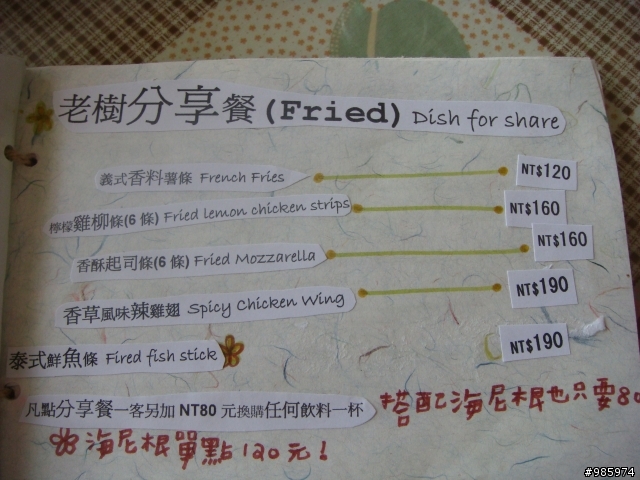 老樹分享餐 (Fried) Dish for share
義式香料薯條 French Fries NT$120
檸檬雞柳條(6 條) Fried lemon chicken strips NT$160
香酥起司條(6 條) Fried Mozzarella NT$160
香草風味辣雞翅 Spicy Chicken Wing NT$190
泰式鮮魚條 Fired fish stick NT$190
凡點分享餐一客另加 NT80 元換購任何飲料一杯
搭配海尼根也只要80
海尼根單點120元!
#985974